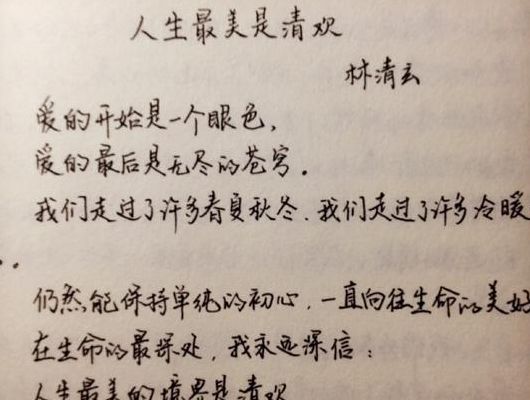 人生最美是清欢
林清玄
爱的开始是一个眼色,
爱的最后是无尽的苍穹.
我们走过了许多春夏秋冬.我们走过了许多冷暖
仍然能保持单纯的初心,一直向往生命的美好
在生命的最深处,我永远深信:
人生最美的境界是清欢